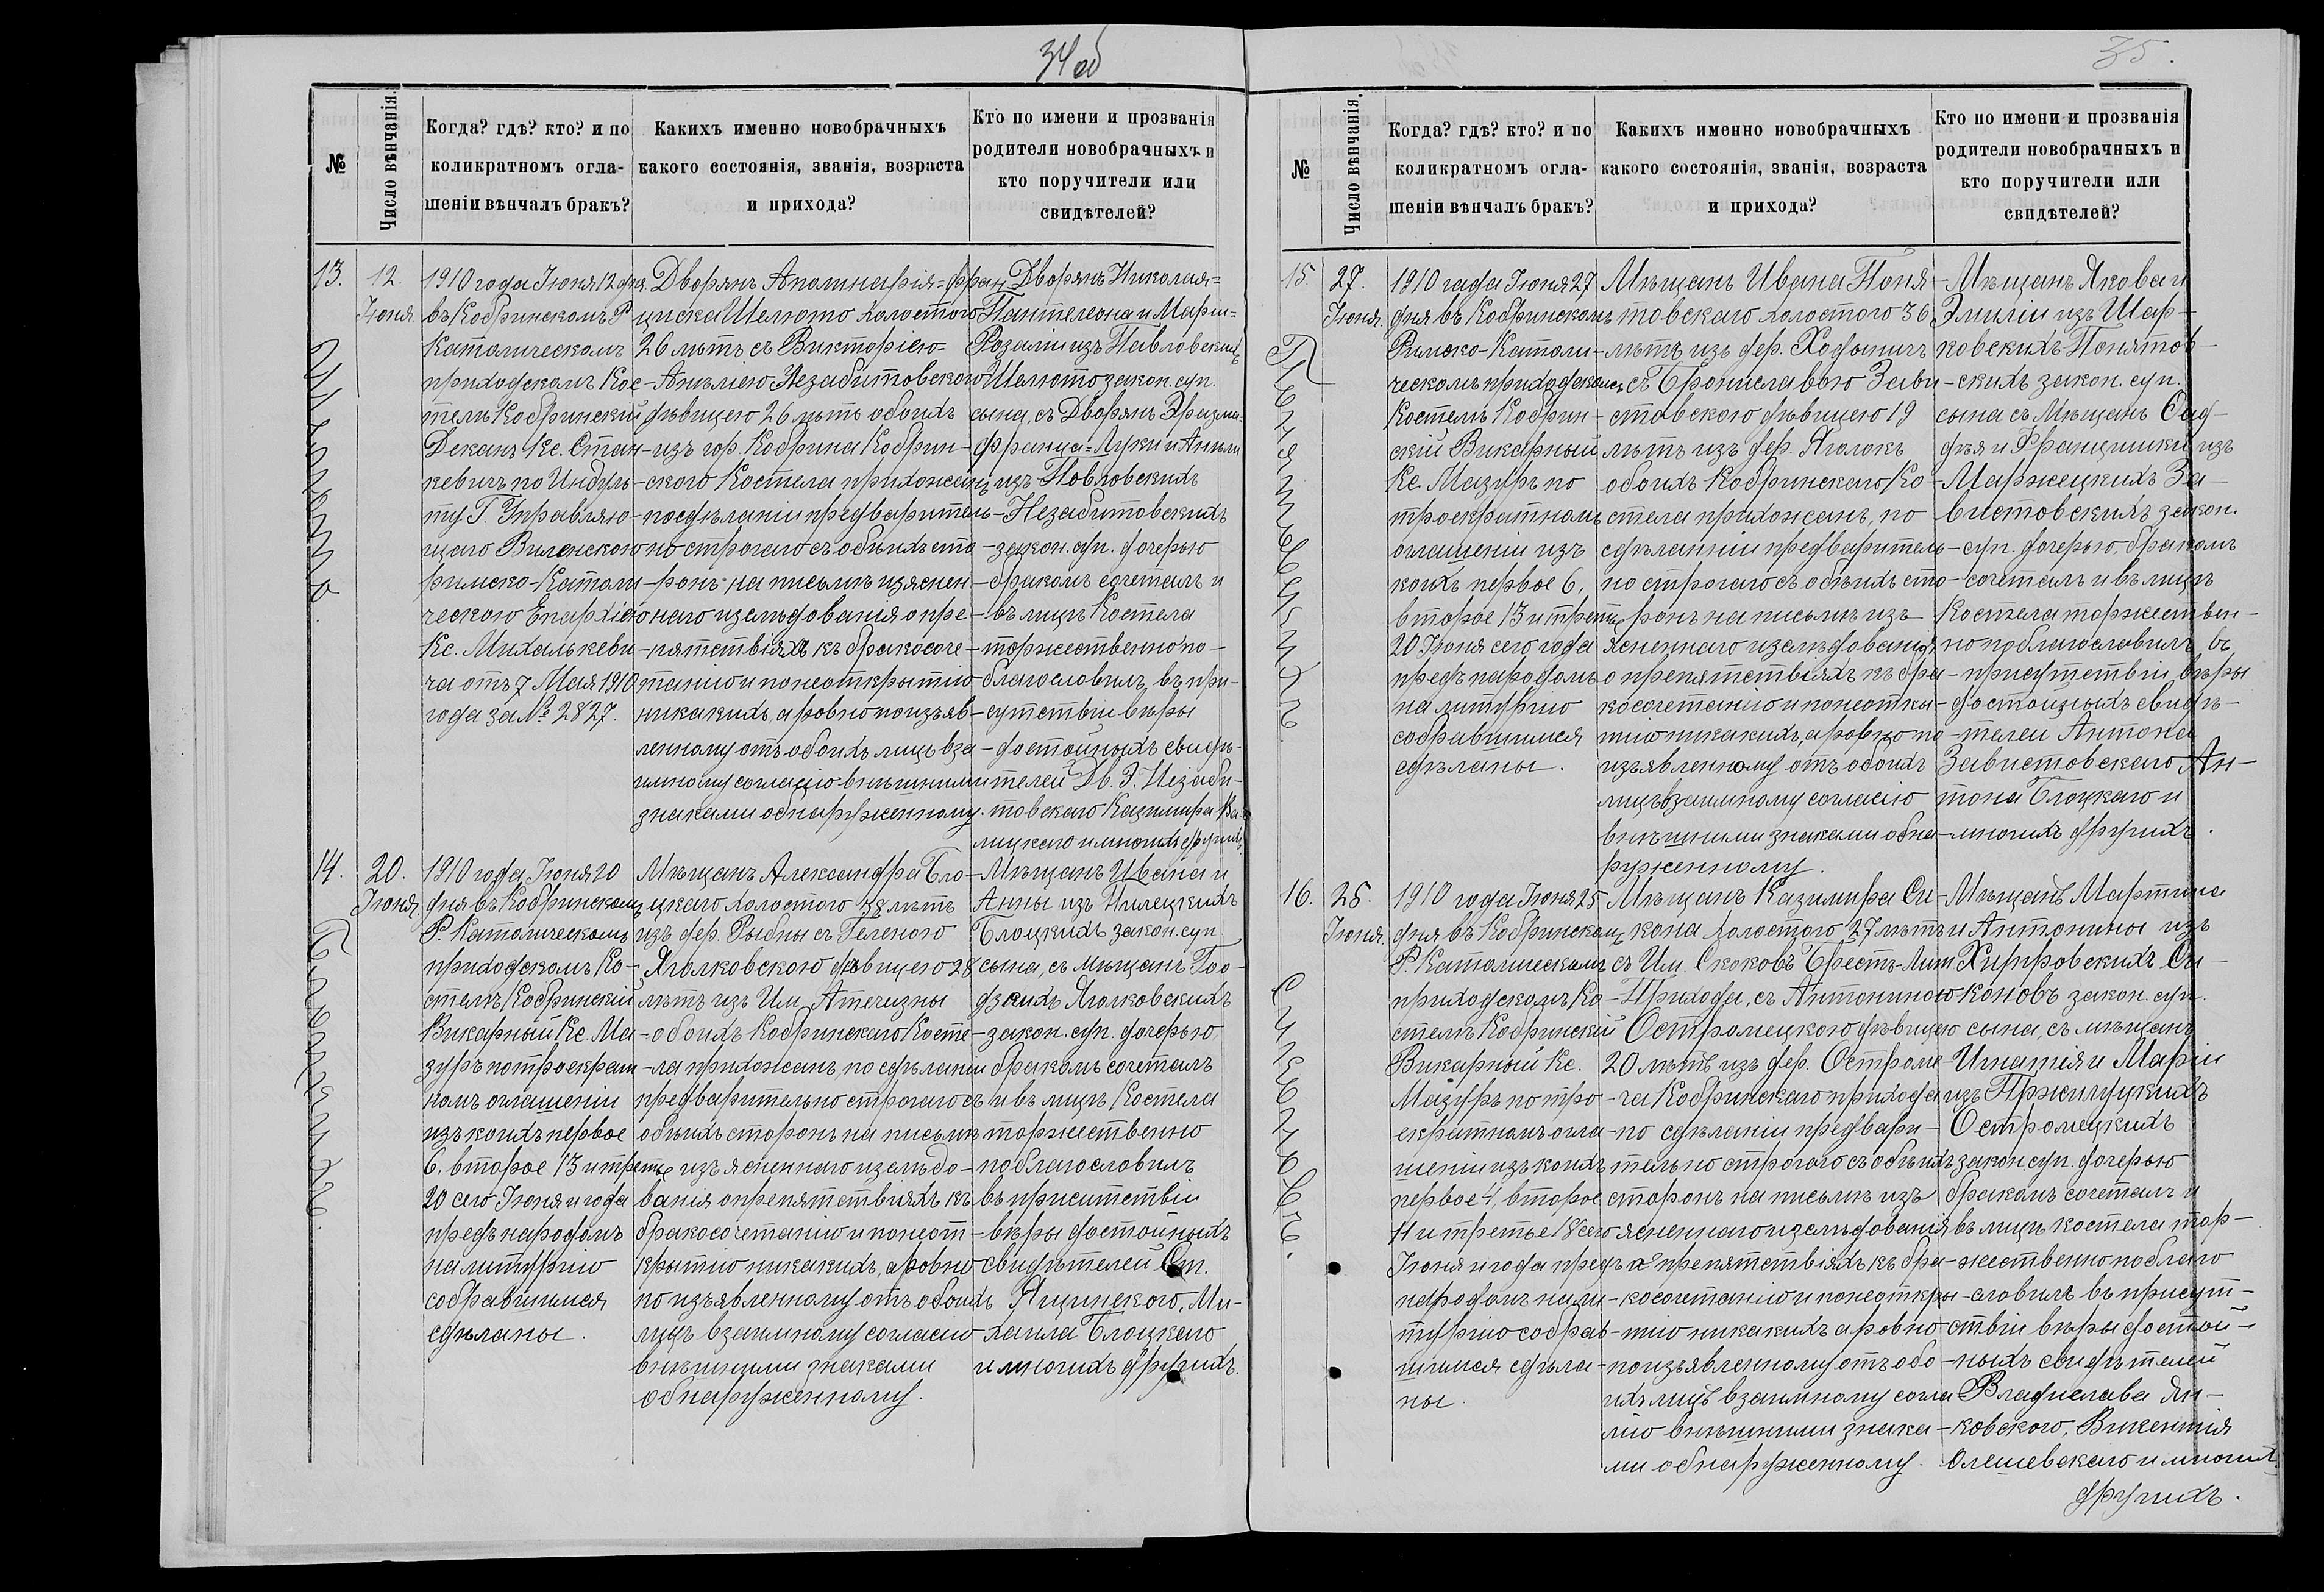 34об
№
Число вѣнчанія.
Когда? гдѣ? кто? и по
коликратномъ огла-
шеніи вѣнчалъ бракъ?
Какихъ именно новобрачныхъ
какого состоянія, званія, возраста
и прихода?
Кто по имени и прозванія
родители новобрачныхъ и
кто поручители или
свидѣтелей?
13.
12.
Іюня
Шелюто.
1910 года Іюня 12 дня
въ Кобринскомъ Р
Католическомъ
приходскомъ Кос-
телѣ Кобринскій
Деканъ Кс. Стан-
кевичъ по Индуль-
ту Г. Управляю-
щаго Виленскою
римско-Католи-
ческою Епархіею
Кс. Михалькеви-
ча отъ 7 Мая 1910
года за № 2827.
Дворянъ Аполинарія=Фран
циска Шелюто холостого
26 лѣтъ съ Викторіею-
Анѣлею Незабитовскою
дѣвицею 26 лѣтъ обоихъ
изъ гор. Кобрина Кобрин-
скаго Костела прихожанъ
по сдѣланіи предваритель-
но строгаго съ обѣихъ сто-
ронъ на письмѣ изяснен-
наго изслѣдованія о пре-
пятствіяхъ къ бракосоче-
танію и по неоткрытію
никакихъ, а ровно по изъяв-
ленному отъ обоихъ лицъ вза-
имному согласію внѣшними
знаками обнаруженному.
Дворянъ Николая=
Пантелеона и Маріи=
Розаліи изъ Павловскихъ
Шелюто закон. суп.
сына, съ Дворянъ Эразма-
Франца=Луки и Анѣли
изъ Повловскихъ
Незабитовскихъ
закон. суп. дочерью
бракомъ сочеталъ и
въ лицѣ Костела
торжественно по-
благословилъ, въ при-
сутствіи вѣры
достойныхъ свидѣ-
телей Дв. Э. Незаби-
товскаго Казимира
лицкаго и многихъ другихъ.
14.
20.
Іюня.
Блоцкихъ.
1910 года Іюня 20
дня въ Кобринскомъ
Р. Католическомъ
приходскомъ Ко-
стелѣ Кобринскій
Викарный Кс. Ма-
зуръ по троекрат-
номъ оглашеніи
изъ коихъ первое
6. второе 13 и третье
20 сего Іюня и года
предъ народомъ
на литургію
собравшимся
сдѣланы.
Мѣщанъ Александра Бло-
цкаго холостого 38 лѣтъ
изъ дер. Рыбны съ Геленою
Яголковскою дѣвицею 28
лѣтъ изъ Им. Атечизны
обоихъ Кобринскаго Косте-
ла прихожанъ, по сдѣланіи
предварительно строгаго съ
обѣихъ сторонъ на письмѣ
изъясненнаго изслѣдо-
ванія о препятствіяхъ къ
бракосочетанію и по неот-
крытію никакихъ, а ровно
по изъявленному отъ обоихъ
лицъ взаимному согласію
внѣшними знаками
обнаруженному.
Мѣщанъ Ивана и
Анны изъ Нилецкихъ
Блоцкихъ закон. суп.
сына, съ мѣщанъ
Яголковскихъ
закон. суп. дочерью
бракомъ сочеталъ
и въ лицѣ Костела
торжественно
поблагословилъ
въ приситствіи
вѣры достойныхъ
свидѣтелей Ст.
Ящинскаго, Ми-
хаила Блоцкаго
и многихъ другихъ.
35.
№
Число вѣнчанія.
Когда? гдѣ? кто? и по
коликратномъ огла-
шеніи вѣнчалъ бракъ?
Какихъ именно новобрачныхъ
какого состоянія, званія, возраста
и прихода?
Кто по имени и прозванія
родители новобрачныхъ и
кто поручители или
свидѣтелей?
15.
27.
Іюня.
Понятовскихъ.
1910 года Іюня 27
дня въ Кобринскомъ
Римско-Католи-
ческомъ приходскомъ
Костелѣ Кобрин-
скій Викарный
Кс. Мазуръ по
троекратномъ
оглашеніи изъ
коихъ первое 6,
второе 13 и третье
20 Іюня сего года
предъ народомъ
на литургію
собравшимся
сдѣланы.
Мѣщанъ Ивана Поня-
товскаго холостого 36
лѣтъ изъ дер. Ходыничъ
съ Брониславою Зави-
стовскою дѣвицею 19
лѣтъ изъ дер. Яголокъ
обоихъ Кобринскаго Ко-
стела прихожанъ, по
сдѣланніи предваритель-
но строгаго съ обѣихъ сто-
ронъ на письмѣ изъ-
ясненнаго изслѣдованія
о препятствіяхъ къ бра-
косочетанію и по неоткры-
тію никакихъ, а ровно по
изъявленному отъ обоихъ
лицъ взаимному согласію
внѣшними знаками обна-
руженному.
Мѣщанъ Якова и
Эмиліи изъ Шар-
ковскихъ Понятов-
скихъ закон. суп.
сына съ Мѣщанъ
и Францишки изъ
Маржецкихъ За-
вистовскихъ закон.
суп. дочерью, бракомъ
сочеталъ и въ лицѣ
Костела торжествен-
но поблагословилъ въ
присутствіи вѣры
достойныхъ свидѣ-
телей Антона
Завистовскаго Ан-
тона Блоцкаго и
многихъ другихъ.
16.
25.
Іюня.
Сиконовъ.
1910 года Іюня 25
дня въ Кобринскомъ
Р. Католическомъ
приходскомъ Ко-
стелѣ Кобринскій
Викарный Кс.
Мазуръ по тро-
екратномъ огла-
шеніи изъ коихъ
первое 4, второе
11 и третье 18 сего
Іюня и года предъ
народомъ на ли-
тургію собрав-
шимся сдѣла-
ны.
Мѣщанъ Казимира Си-
кона холостого 27 лѣтъ
съ Им. Скоковъ Брестъ-Лит
Прихода, съ Антониною
Остромецкою дѣвицею
20 лѣтъ изъ дер. Остроме-
ча Кобринскаго прихода
по сдѣланіи предвари-
тельно строгаго съ обѣихъ
сторонъ на письмѣ изъ
ясненнаго изслѣдованія
о препятствіяхъ къ бра-
косочетанію и по неоткры-
тію никакихъ а ровно
по изъявленному отъ обо-
ихъ лицъ взаимному согла
сію внѣшними знака-
ми обнаруженному.
Мѣщанъ Мартина
и Антонины изъ
Хитровскихъ Си-
коновъ закон. суп.
сына, съ мѣщанъ
Игнатія и Маріи
изъ Пржилуцкихъ
Остромецкихъ
закон. суп. дочерью
бракомъ сочеталъ и
въ лицѣ костела тор-
жественно поблаго
словилъ въ присут-
ствіи вѣры достой-
ныхъ свидѣтелей
Владислава Ян-
ковскаго, Викентія
Олешевскаго и многихъ
другихъ.